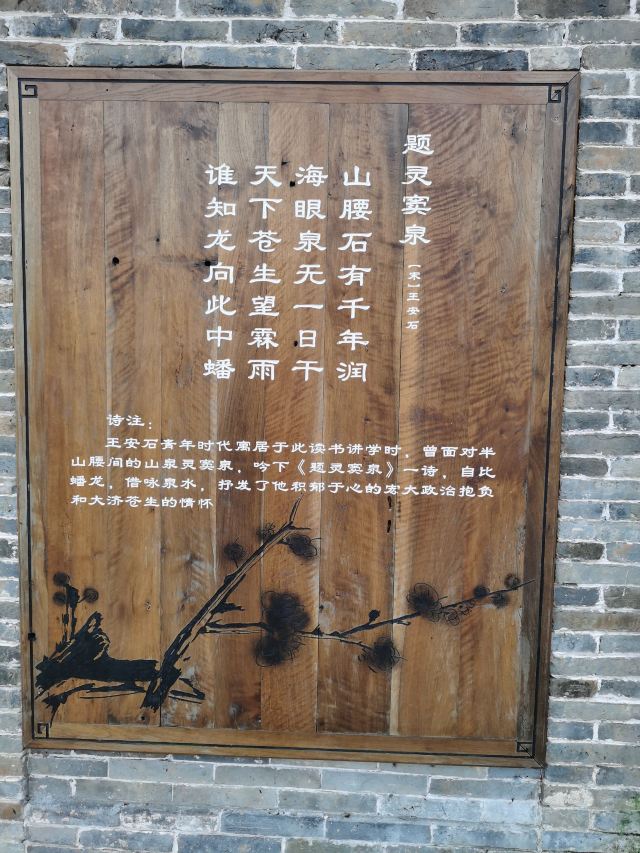 题灵窦泉
【宋】王安石
山腰石有千年润
海眼泉无一日干
天下苍生望霖雨
谁知龙向此中蟠
诗注：
王安石青年时代寓居于此读书讲学时，曾面对半
山腰间的山泉灵窦泉，吟下《题灵窦泉》一诗，自比
蟠龙，借咏泉水，抒发了他积郁于心的宏大政治抱负
和大济苍生的情怀